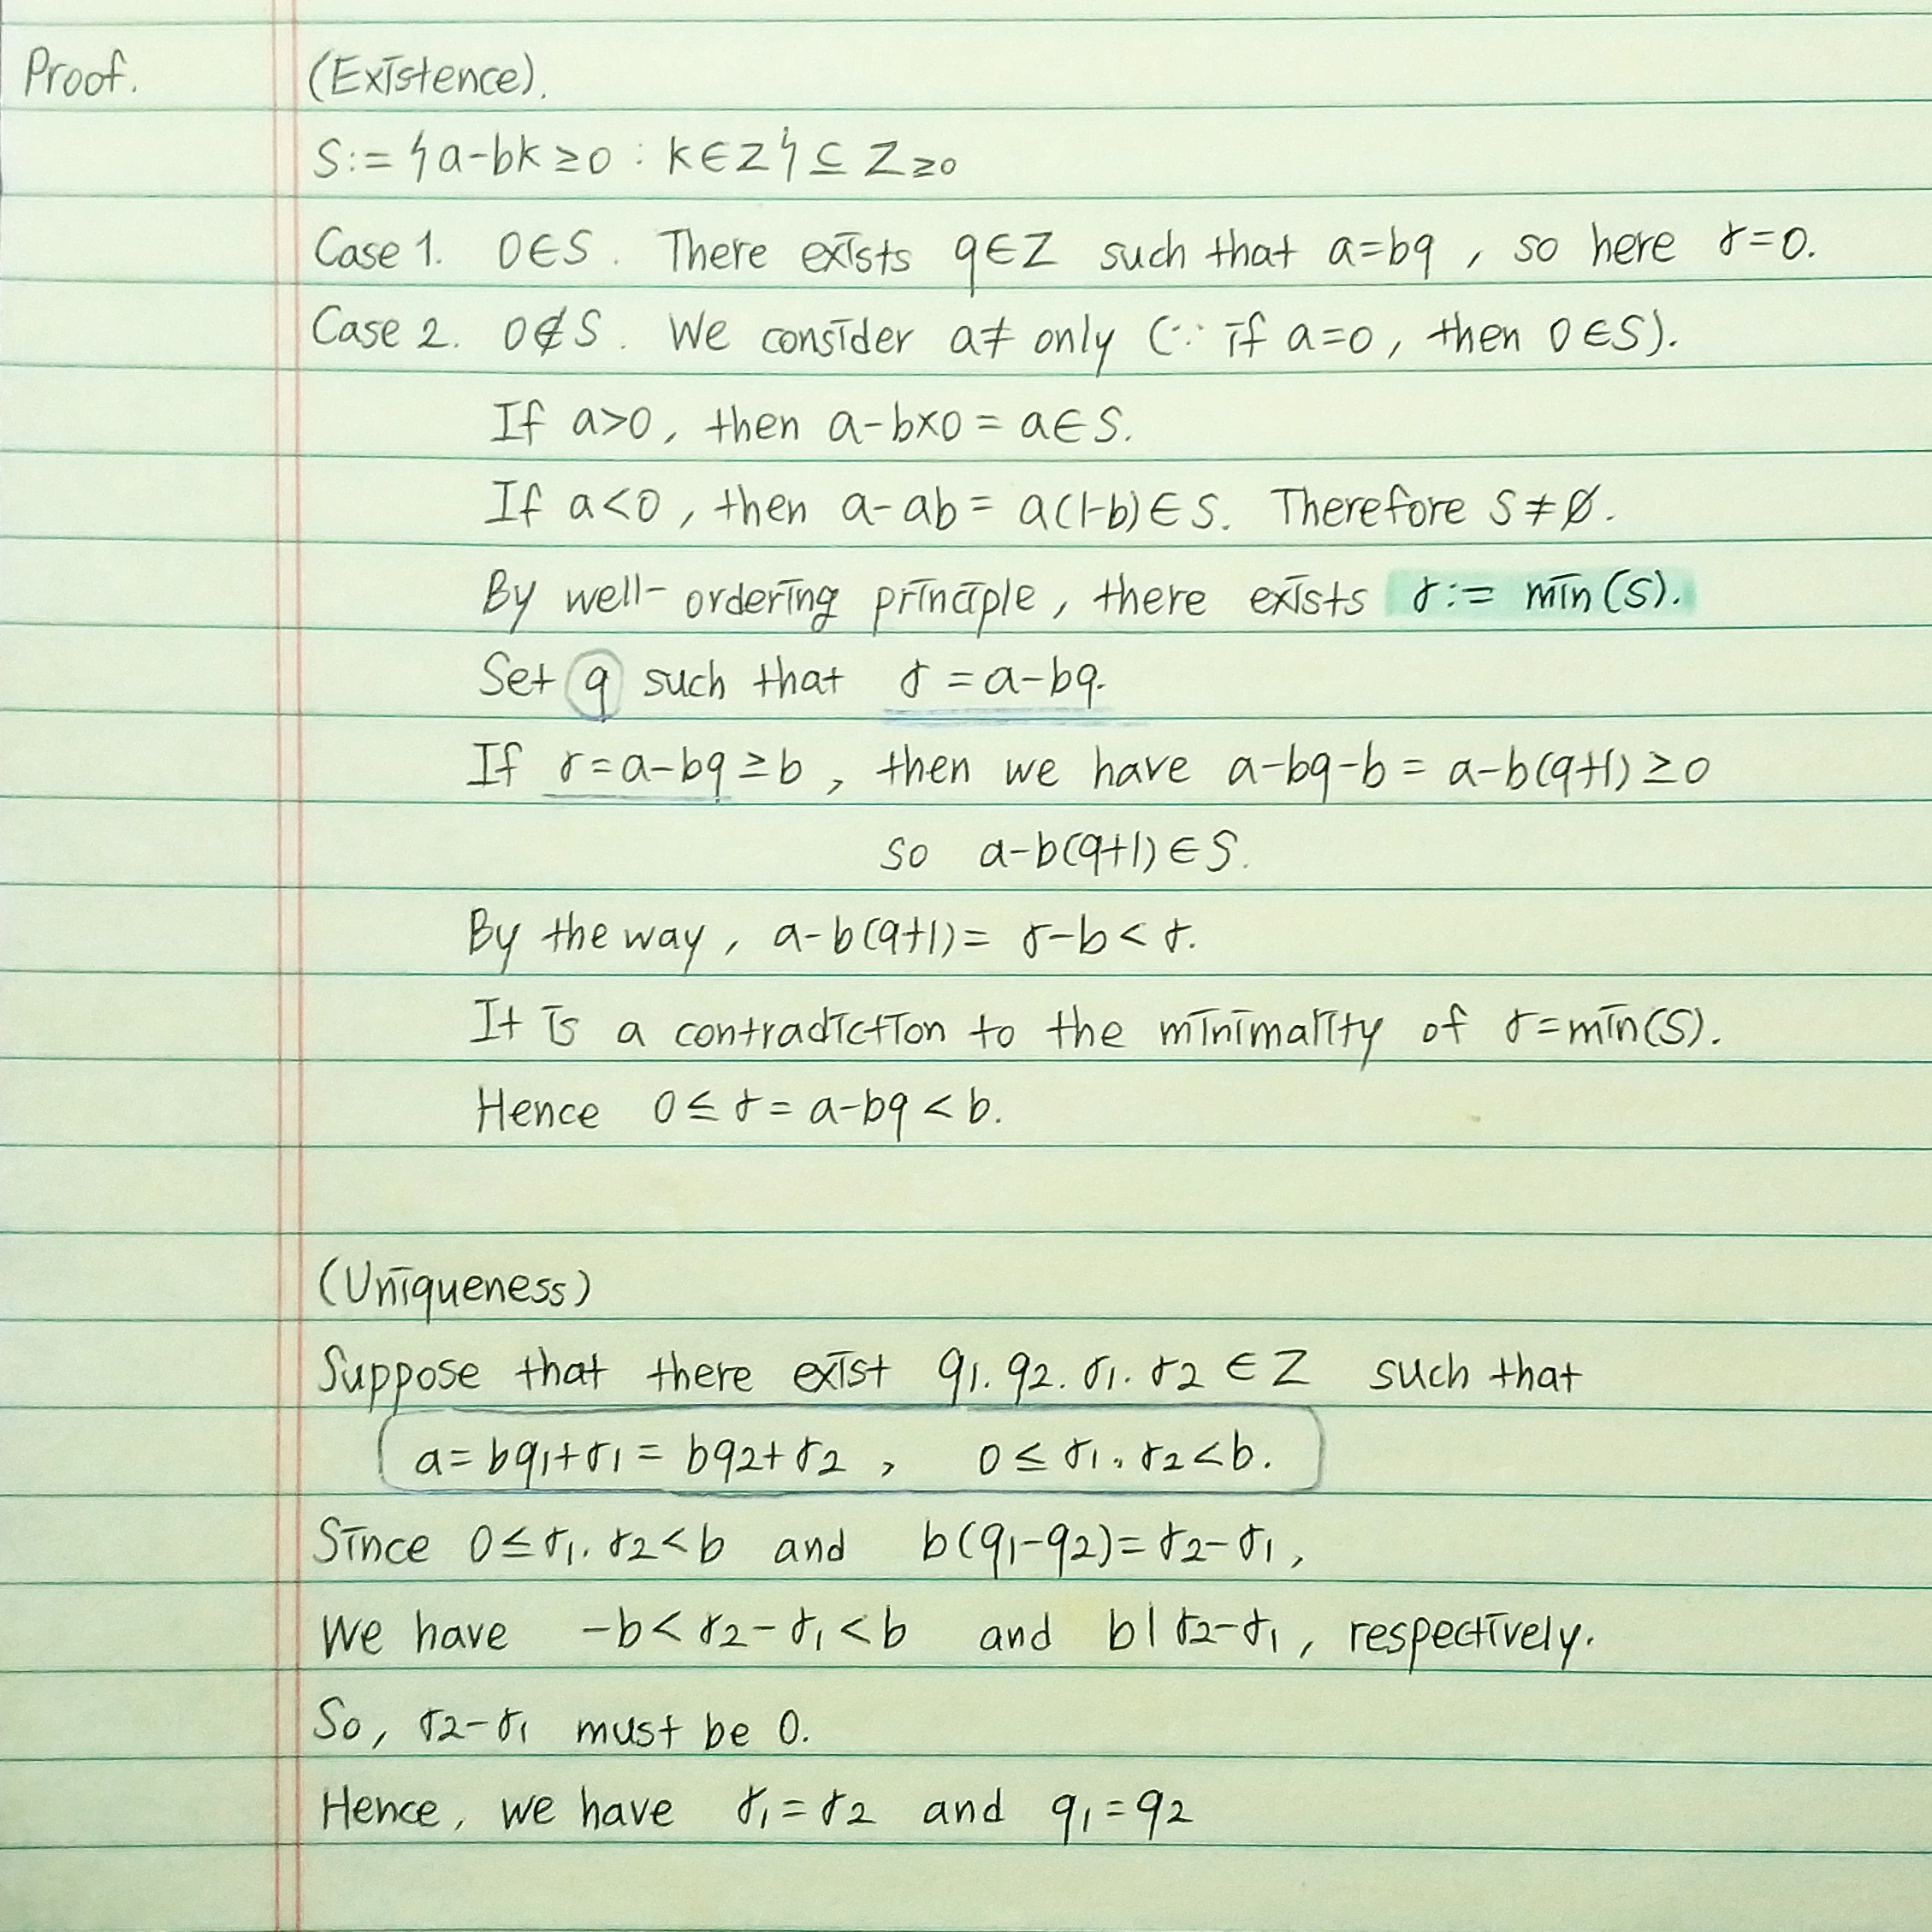 Proof. (Existence).
S:= {a-bk≥0 : k∈Z} ⊆ Z≥0
Case 1. 0∈S. There exists q∈Z such that a=bq, so here r=0.
Case 2. 0∉S. We consider a≠ only (∵ if a=0, then 0∈S).
If a>0, then a-b×0 = a∈S.
If a<0, then a-ab = a(1-b)∈S. Therefore S≠∅.
By well-ordering principle, there exists r:= min(S).
Set q such that r=a-bq.
If r=a-bq≥b, then we have a-bq-b = a-b(q+1)≥0
so a-b(q+1)∈S.
By the way, a-b(q+1)= r-b<r.
It is a contradiction to the minimality of r=min(S).
Hence 0≤r=a-bq<b.
(Uniqueness)
Suppose that there exist q1. q2. r1. r2 ∈Z such that
a= bq1+r1= bq2+r2, 0≤ r1, r2<b.
Since 0≤r1. r2<b and b(q1-q2)= r2-r1,
We have -b< r2-r1<b and b|r2-r1, respectively.
So, r2-r1 must be 0.
Hence, we have r1=r2 and q1=q2